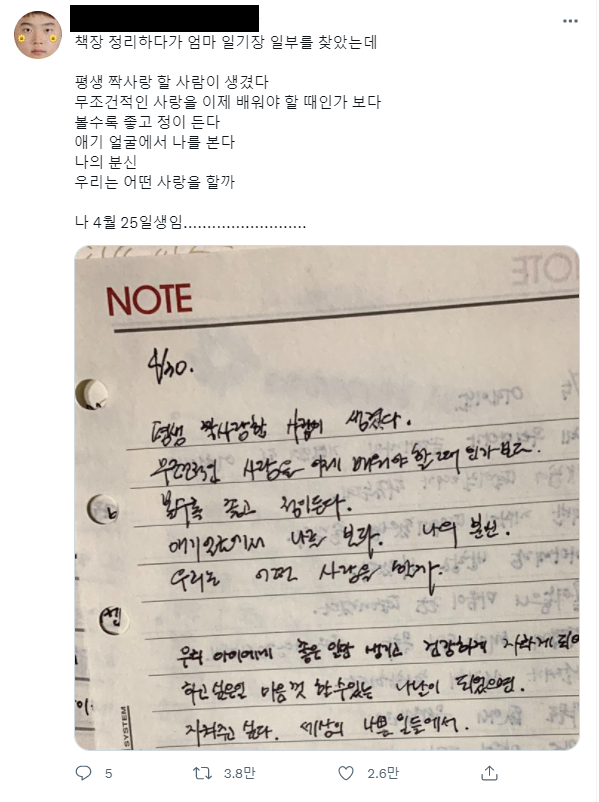 책장 정리하다가 엄마 일기장 일부를 찾았는데
평생 짝사랑 할 사람이 생겼다
무조건적인 사랑을 이제 배워야 할 때인가 보다
볼수록 좋고 정이 든다
애기 얼굴에서 나를 본다
나의 분신
우리는 어떤 사랑을 할까
나 4월 25일생임..........................
NOTE
4/30.
평생 짝사랑할 사람이 생겼다.
무조건적인 사랑을 이제 배워야 할 때인가보다.
볼수록 좋고 정이든다.
애기얼굴에서 나를 본다. 나의 분신.
우리는 어떤 사랑을 할까.
우리 아이에게 좋은 일만 생기고 건강하게 자라게 되어
하고싶은일 마음껏 할수있는 나날이 되었으면.
지켜주고 싶다. 세상의 나쁜 일들에서.
SYSTEM
5
3.8만
2.6만